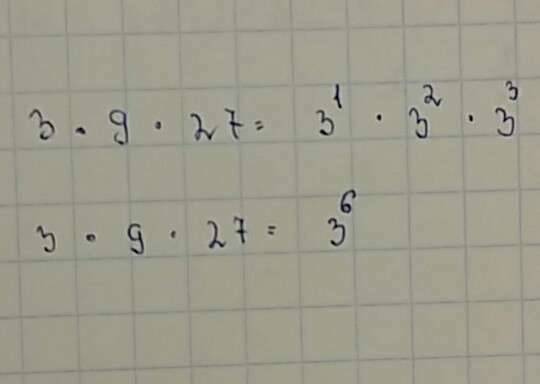 3 · 9 · 27 = 3¹ · 3² · 3³
3 · 9 · 27 = 3⁶